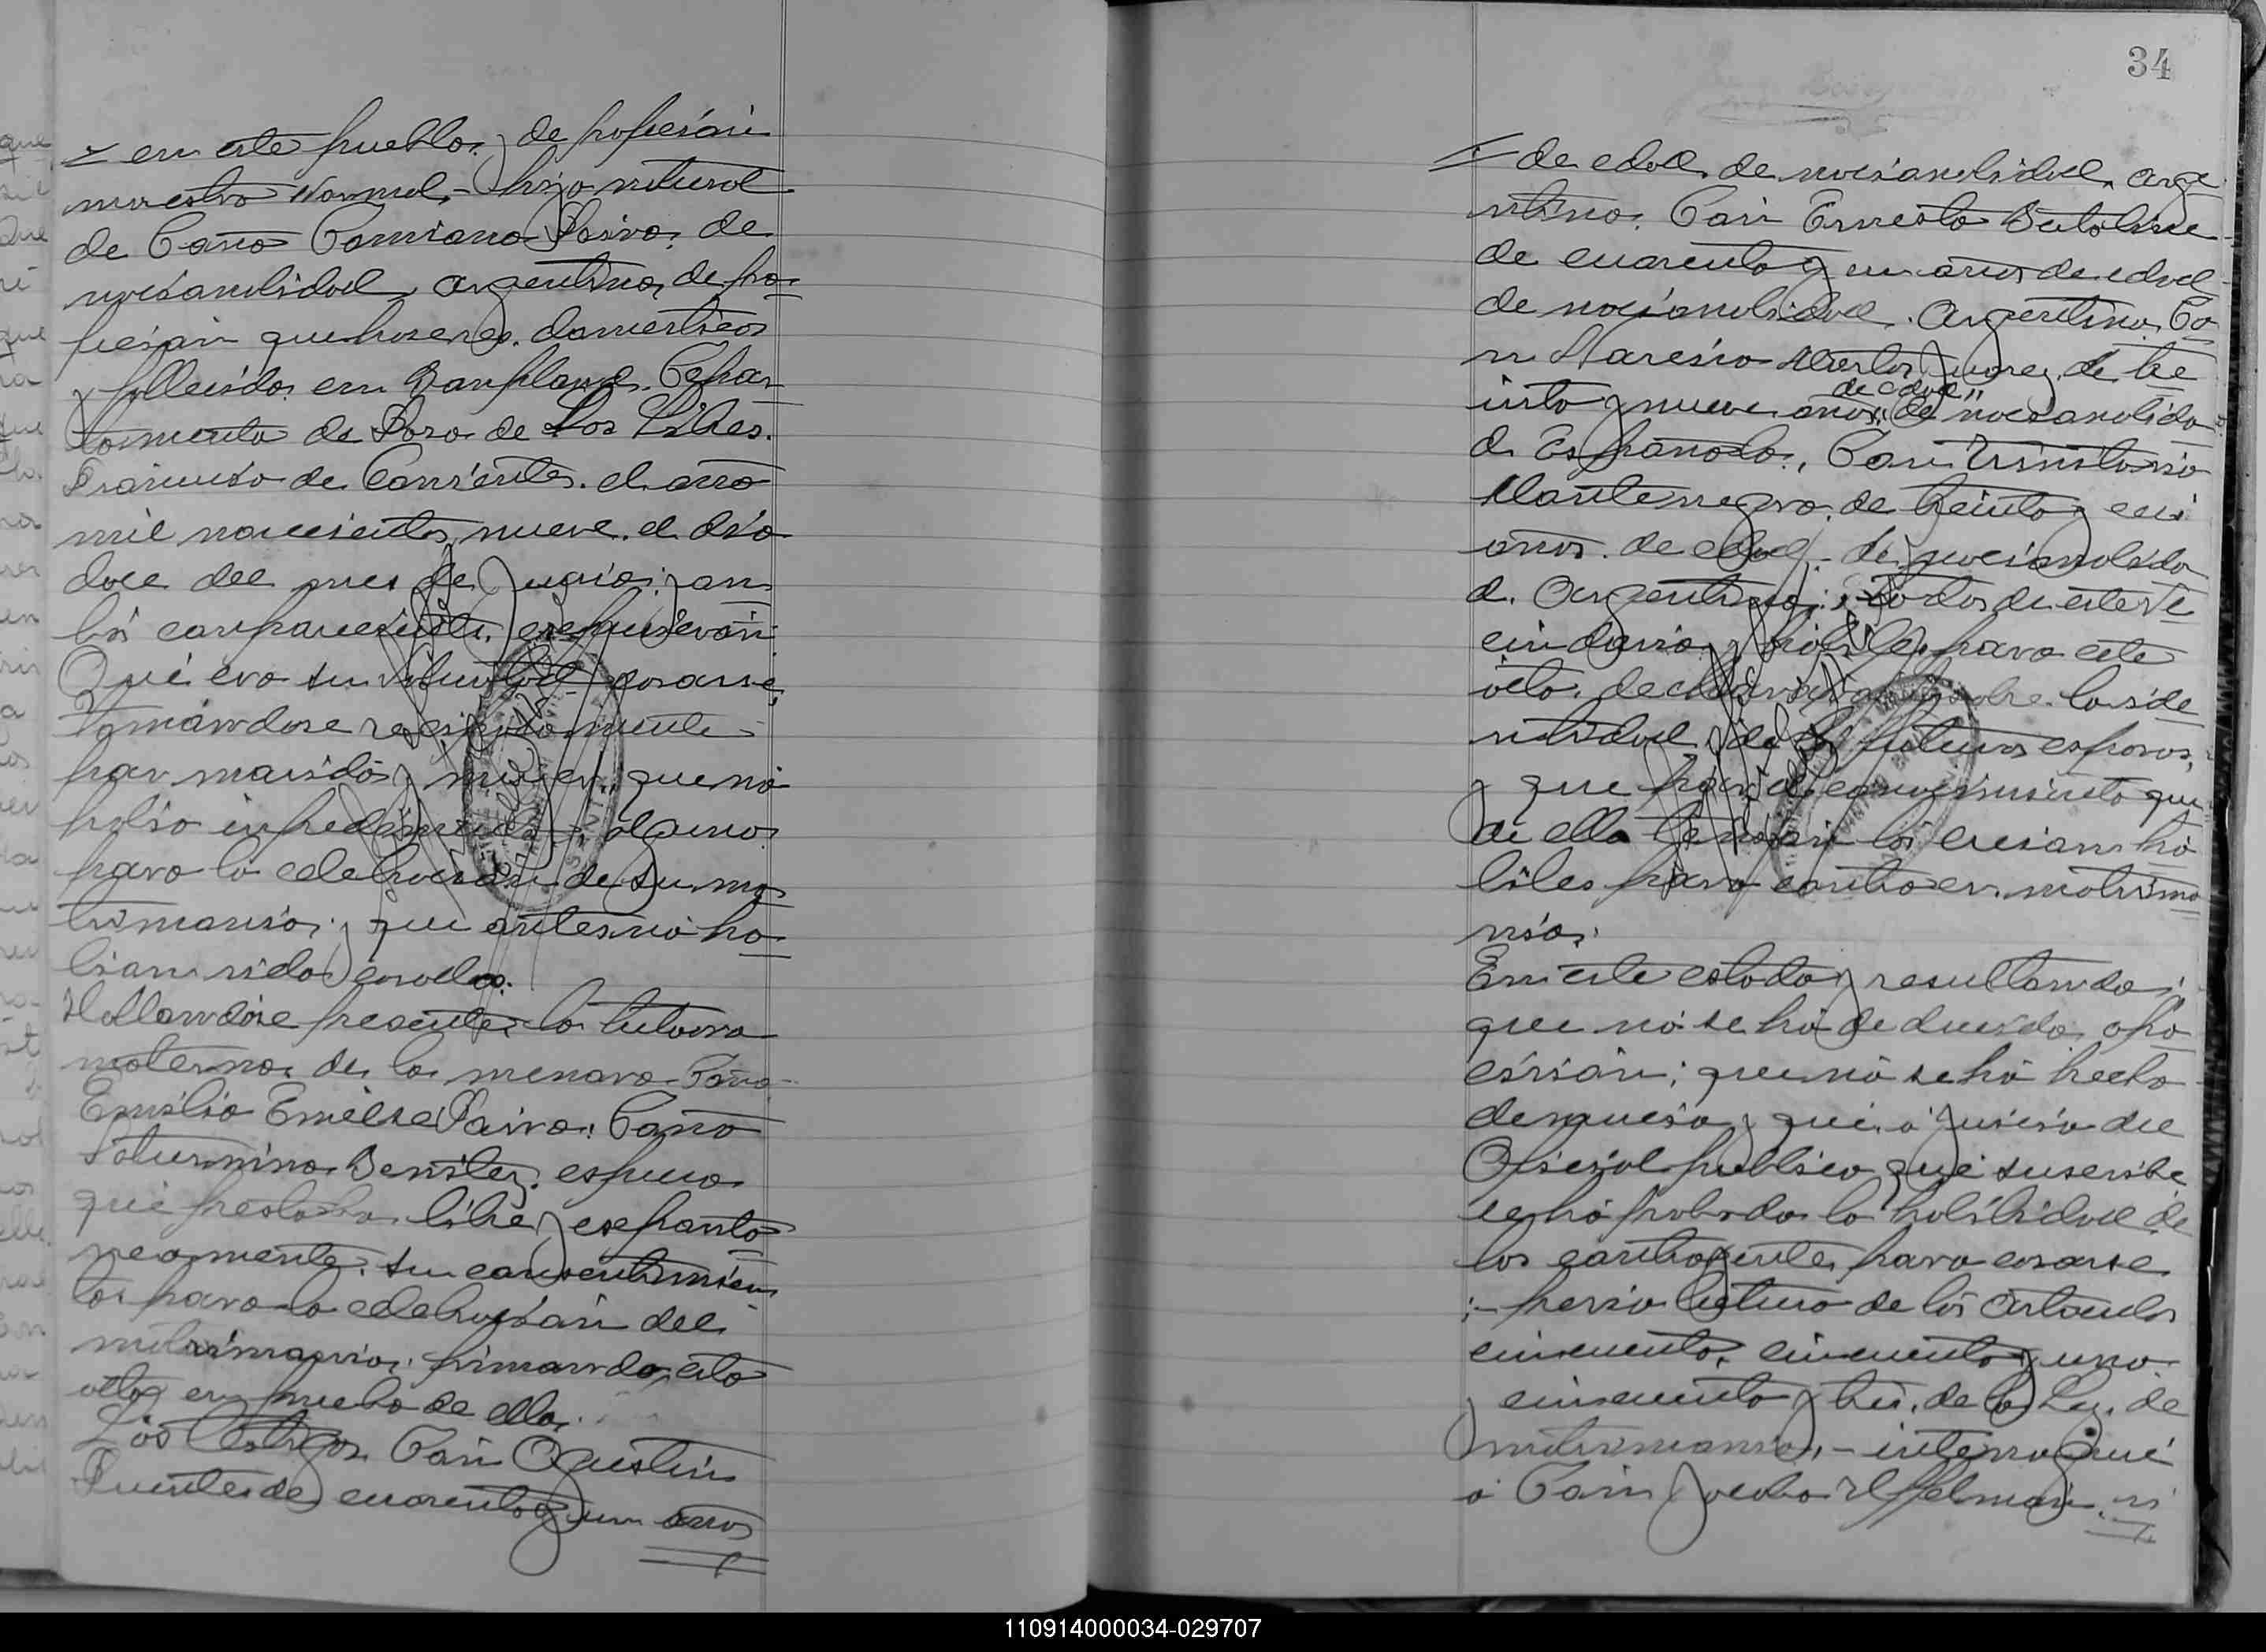 en este pueblo, de profesión
maestra Normal, - hija natural
de Doña Damiana Paiva, de
nacionalidad argentina, de pro
fesión quehaseres domesticos
y fallecida en Bonpland. Depar
tamento de Paso de Los Libres.
Provincia de Corrientes. el año
mil novecientos nueve. el día
doce del mes de Junio; am
bos comparecientes, expusieron:
Que era su voluntad casarse,
tomándose reciprocamente
por marido y mujer, que no
habia impedimento alguno
para la celebración de su ma
trimonio, y que antes no ha
bian sido casados.
Hallandose presente la tutora
materna de la menora Doña
Emilia Emelse Paiva: Doña
Saturnina Benitez, expuso
que prestaba libre y espanta
neamente su consentimien
to para la celebración del
matrimonio, firmando esta
acta en prueba de ello.
Los testigos Don Agustin
Puentes de cuarenta y un años
34
de edad, de nacionalidad, arge
ntino. Don Ernesto
de cuarenta y un años de edad
de nacionalidad. Argentino, Do
n Juarez, de tre
de edad"
inta y nueve años, "de nacionalida
d. Española, Don Trinitario
Montenegro, de treinta y seis
años. de edad, - de nacionalida
d. Argentina; todos de este Ve
cindario, y habiles para este
acto, declararon sobre la ide
ntidad de los futuros esposos,
y que por el conocimiento que
de ello tenian los creian ha
biles para contraer matrimo
nio.
En este estado y resultando;
que no se ha deducido opo
sisión; que no se ha hecho
denuncia y que, a juicio del
Oficial publico que suscribe
se ha probado la habilidad de
los contrayentes para casarse
;- previa lectura de los artículos
cincuenta, cincuenta y uno
y cincuenta y tres, de la Ley, de
matrimonio, - interrogué
a Don Jacobo si
110914000034-029707